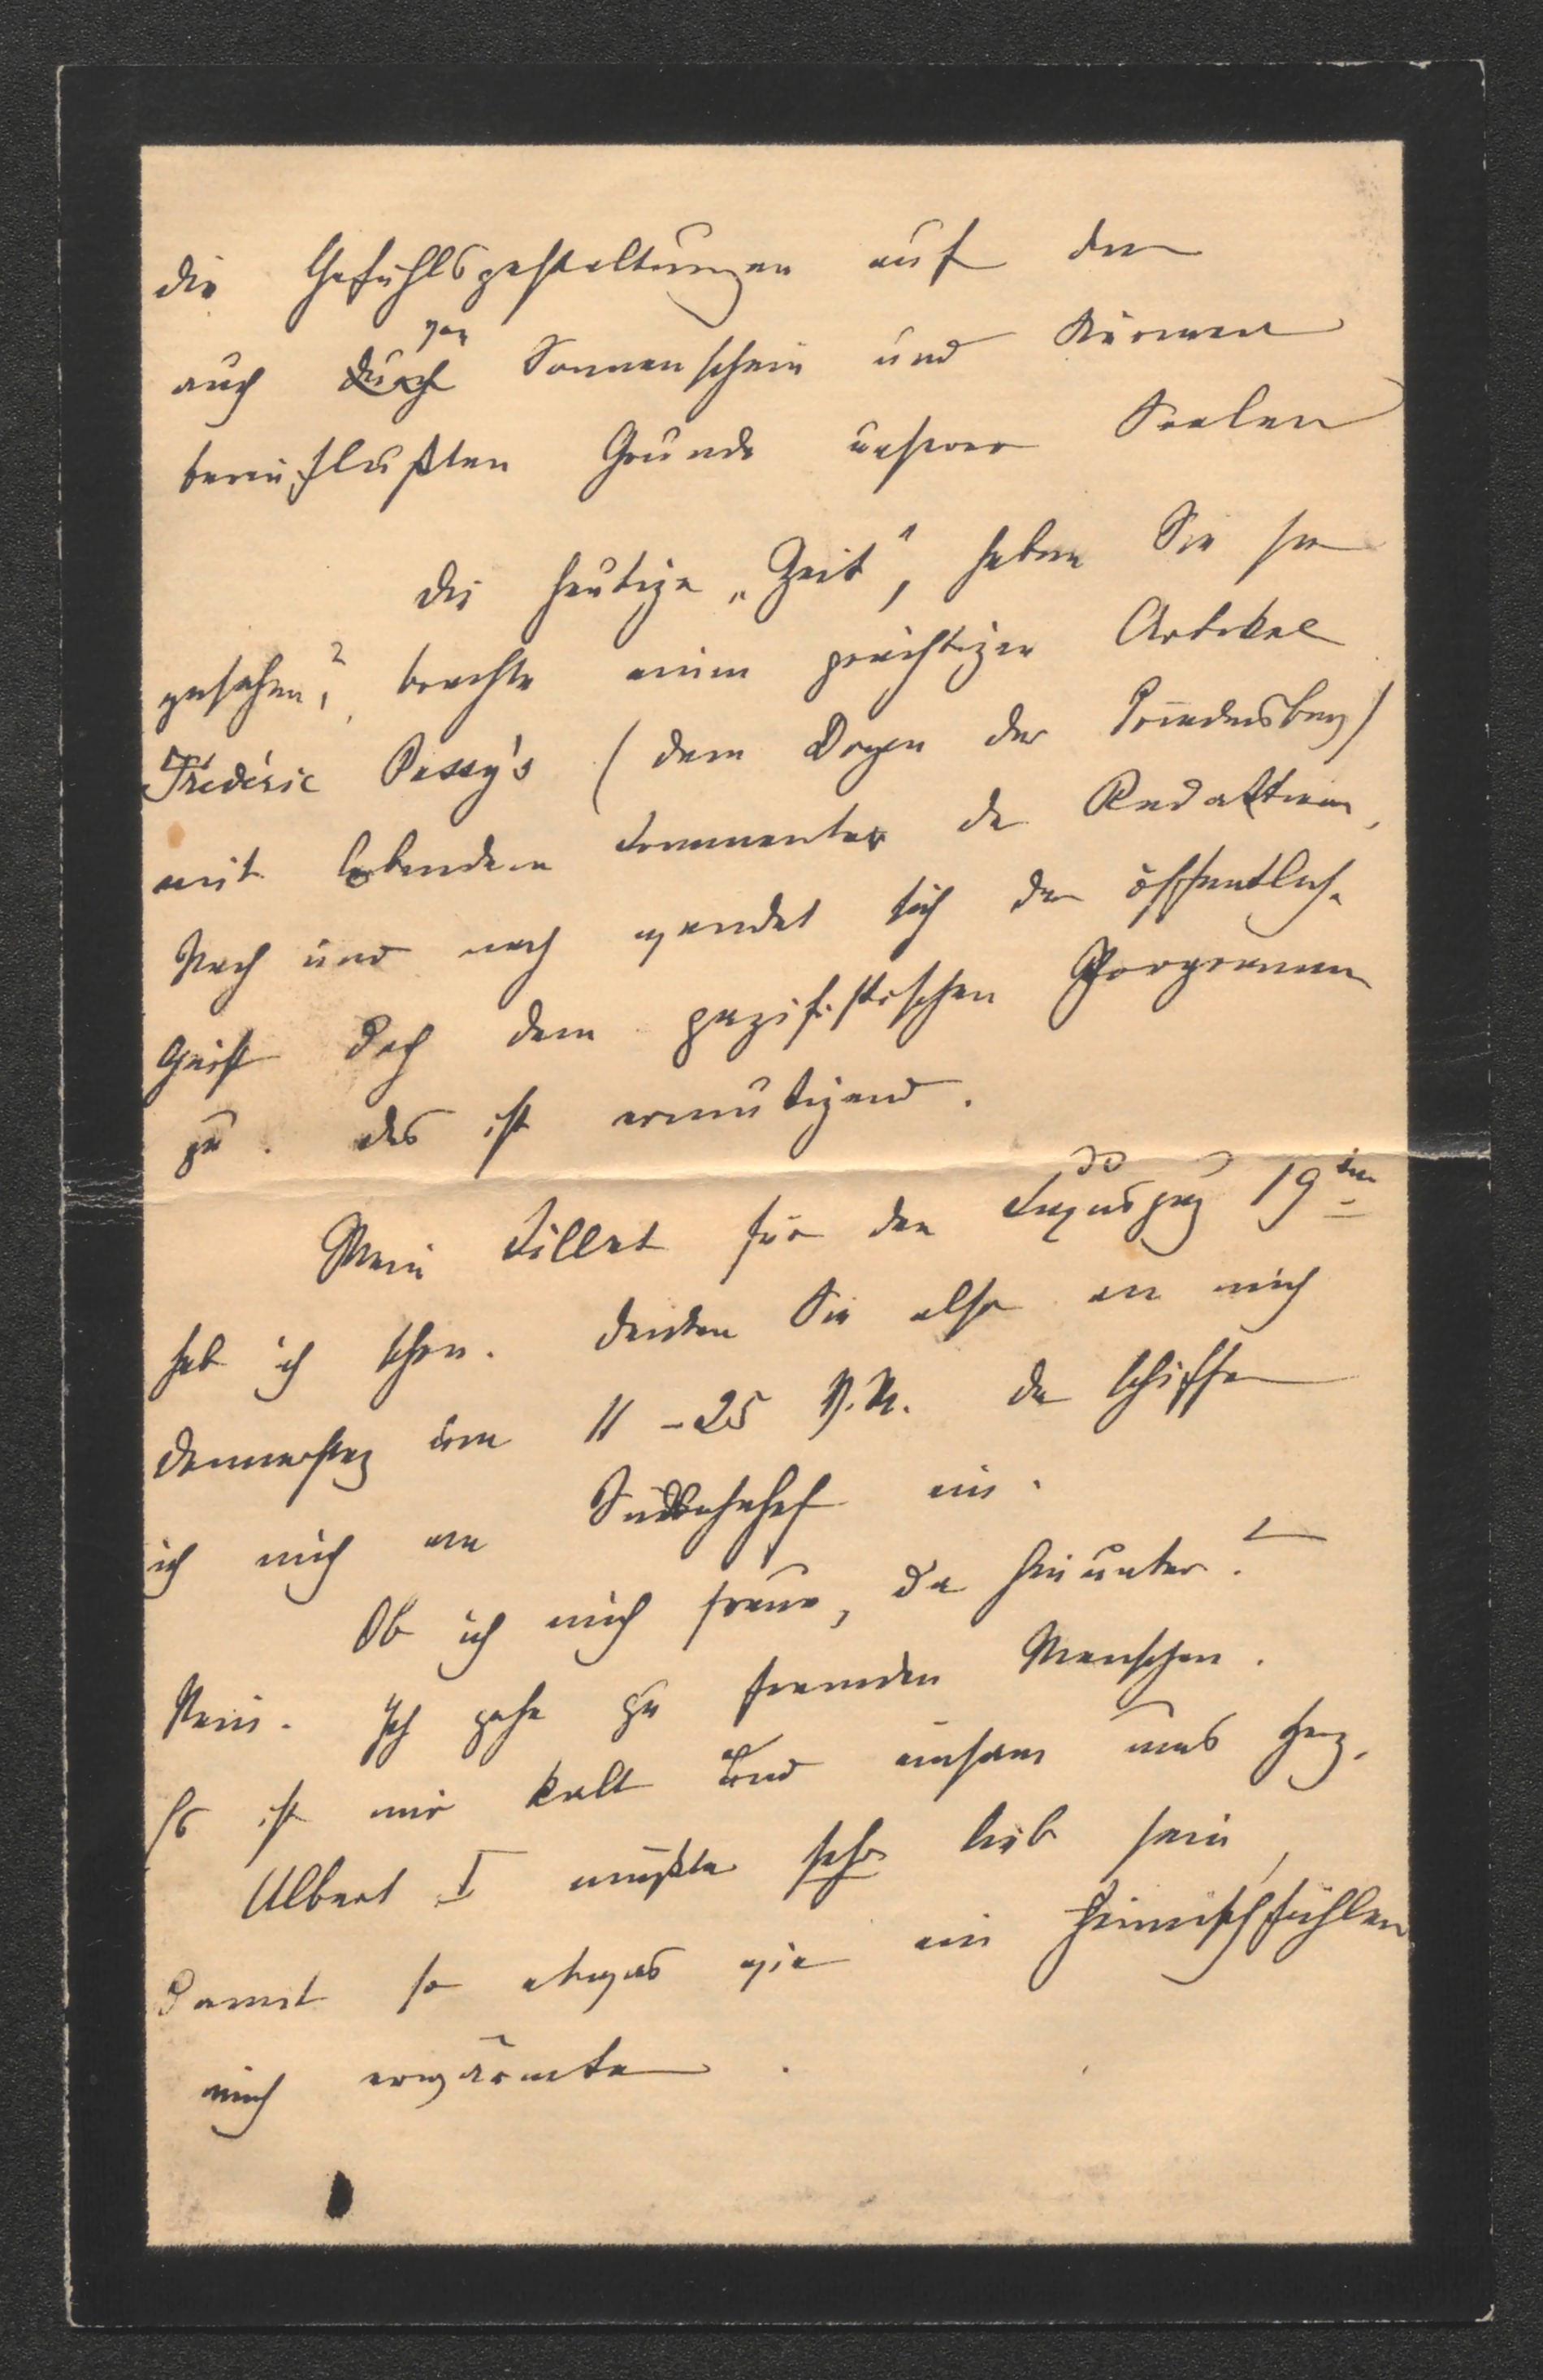 die Gefühlsgestaltungen auf dem
auch durch von Sonnenschein und Stürmen
beeinflußten Grunde unserer Seelen
Die heutige „Zeit", haben Sie sie
gesehen?, brachte einen prächtigen Artikel
Frédéric Passy's (dem Doyen der Friedensbew)
mit lobendem Commentar der Redaktion,
Nach und nach wendet sich der öffentliche
Geist doch dem pazifistischen Programm
zu. Das ist ermutigend.
Mein Billet für den Luxuszug 19ten
hab ich schon. Denken Sie also an mich
Donnerstag um 11-25 V.M. Da schiffe
ich mich am Südbahnhof ein.
Ob ich mich freue, da hinunter?
Nein. Ich gehe zu fremden Menschen.
Es ist mir kalt und einsam ums Herz.
Albert I müßte sehr lieb sein,
damit so etwas wie ein Heimischfühlen
mich erwärmte.